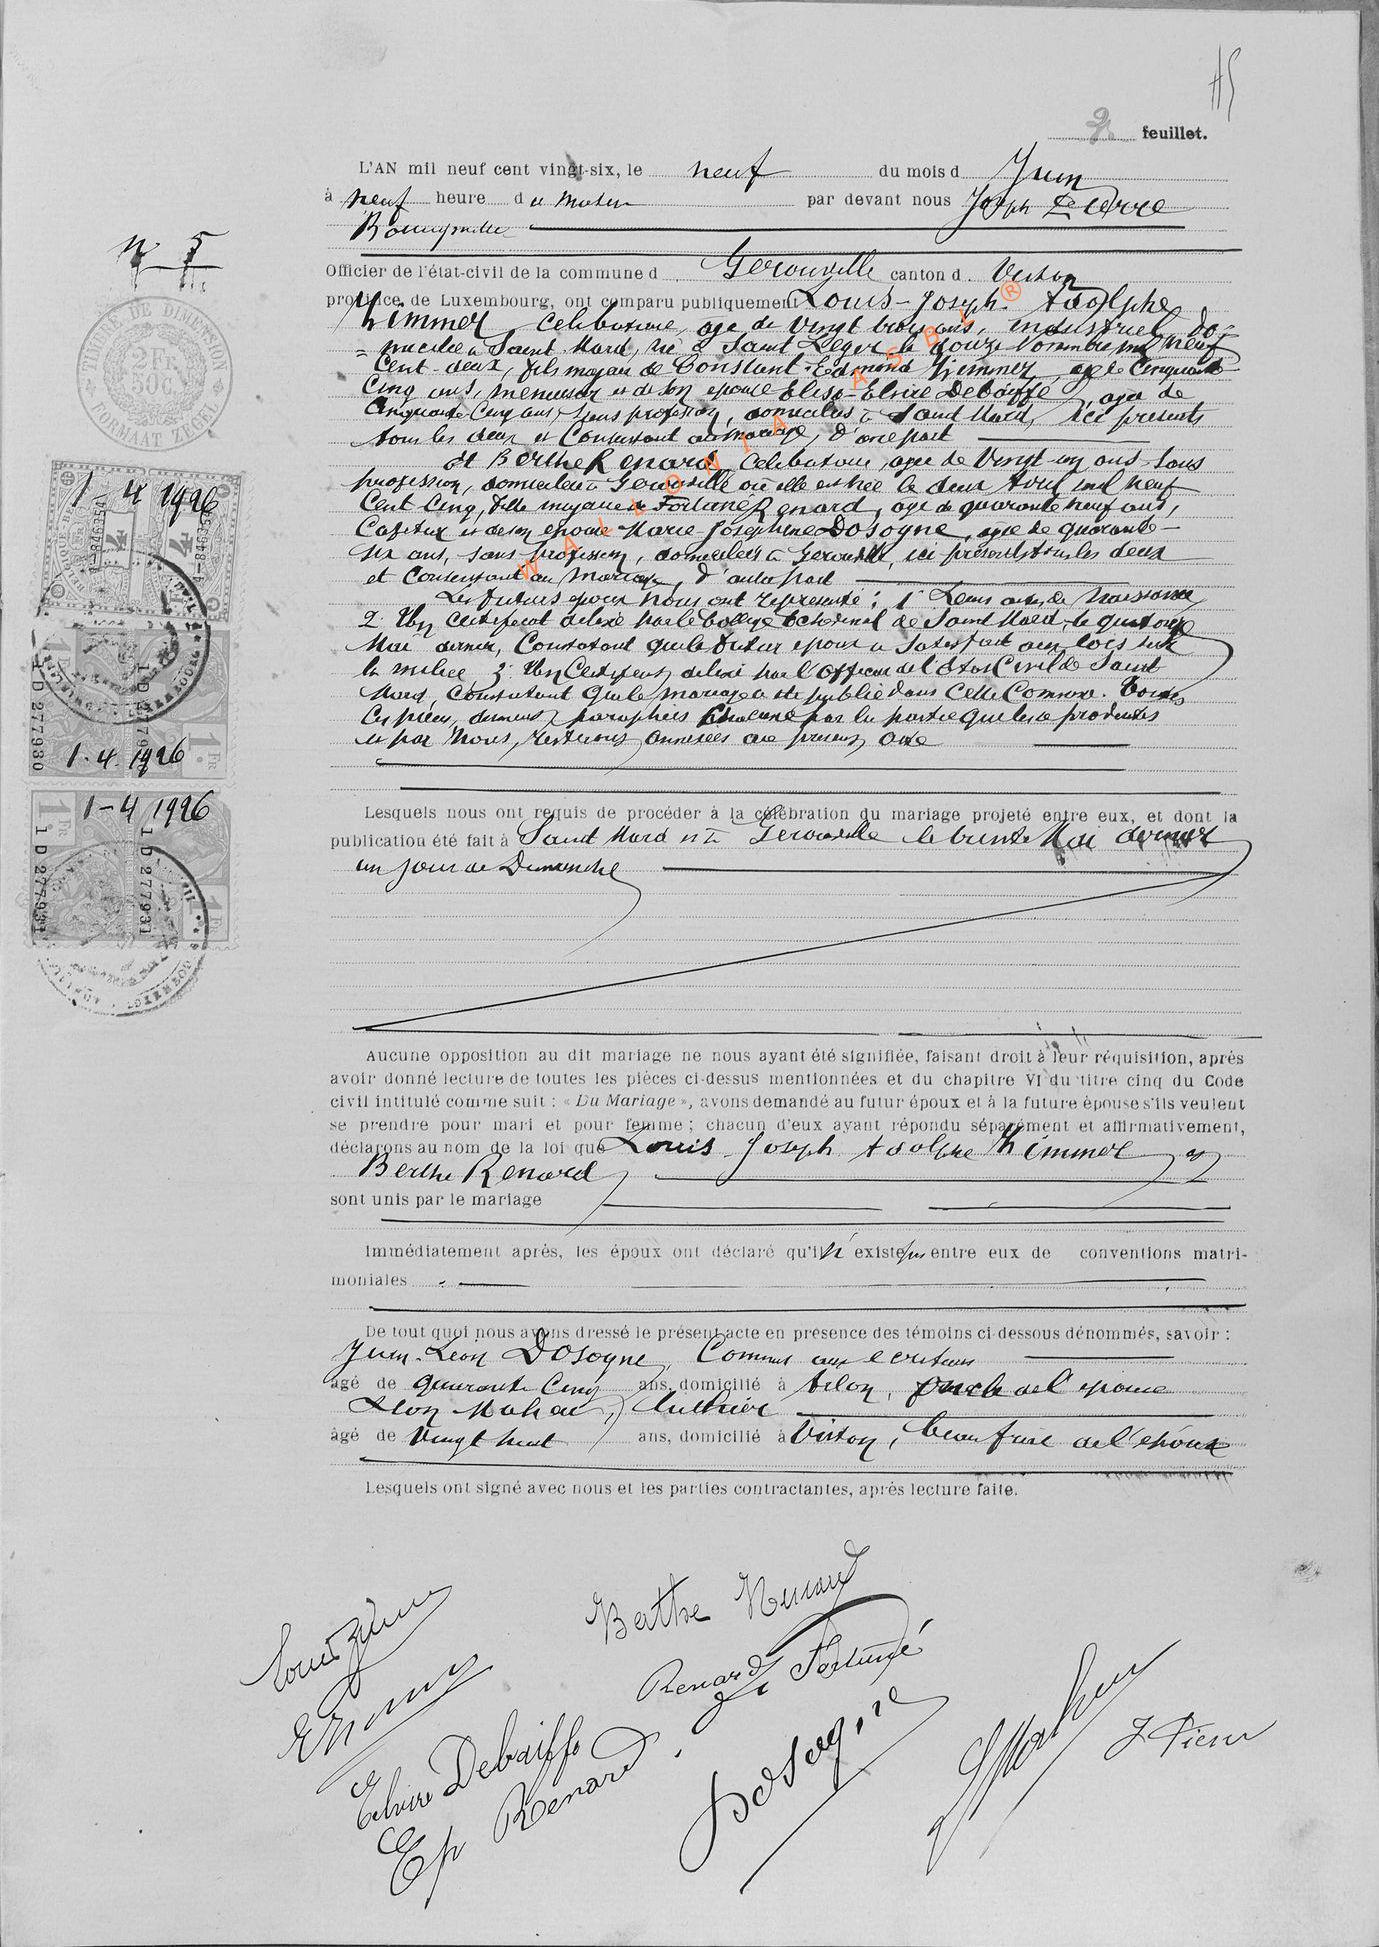 2e feuillet.
L'AN mil neuf cent vingt-six, le neuf du mois d Juin
à neuf heure du matin par devant nous Joseph Pierre
Bourgmestre
N° 5
Officier de l'état-civil de la commune d Gerouville canton d Virton
province de Luxembourg, ont comparu publiquement Louis-Joseph-Adolphe
Zimmer, célibataire, âgé de vingt trois ans, industriel, do=
=micilié à Saint Mard, né à Saint Léger le douze Novembre mil neuf
cent-deux, fils majeur de Constant-Edmond Zimmer, âgé de cinquante
cinq ans, menuisier et de son épouse Elise-Elvire Debaiffe, âgée de
cinquante-cinq ans, sans profession, domiciliés à Saint Mard, ici présents
tous les deux et consentant au mariage, d'une part
et Berthe Renard, célibataire, âgée de vingt-un ans-sans
profession, domiciliée à Gerouville où elle est née le deux Avril mil neuf
cent cinq, fille majeure de Fortuné Renard, âgé de quarante neuf ans,
cafetier et de son épouse Marie Joséphine Dosogne, âgée de quarante-
six ans, sans profession, domiciliés à Gerouville, ici présents tous les deux
et consentant au mariage, d'autre part
Les futurs époux nous ont représenté : 1° Leurs actes de naissance
2° Un certificat délivré par le Collège échevinal de Saint Mard, le quatorze
Mai dernier, constatant que le futur époux a satisfait aux lois sur
la milice 3° Un certificat délivré par l'officier de l'état civil de Saint
Mard, constatant que le mariage a été publié dans cette commune. Toutes
ces pièces, dûment paraphées chacune par la partie qui les a produites
et par Nous, resteront annexées au présent acte
1 4 1926
1 D 277930
1.4.1926
1-4 1926
1 D 277931
TIMBRE DE DIMENSION
2 Fr. 50 c.
FORMAAT ZEGEL
WALLONIA ASBL ®
Lesquels nous ont requis de procéder à la célébration du mariage projeté entre eux, et dont la
publication été fait à Saint Mard et à Gerouville le trente Mai dernier
un jour de Dimanche
Aucune opposition au dit mariage ne nous ayant été signifiée, faisant droit à leur réquisition, après
avoir donné lecture de toutes les pièces ci-dessus mentionnées et du chapitre VI du titre cinq du Code
civil intitulé comme suit : « Du Mariage », avons demandé au futur époux et à la future épouse s'ils veulent
se prendre pour mari et pour femme ; chacun d'eux ayant répondu séparément et affirmativement,
déclarons au nom de la loi que Louis Joseph Adolphe Zimmer et
Berthe Renard
sont unis par le mariage
Immédiatement après, les époux ont déclaré qu'il n'existe pas entre eux de conventions matri-
moniales
De tout quoi nous avons dressé le présent acte en présence des témoins ci dessous dénommés, savoir :
Léon Dosogne, Commis aux écritures
âgé de quarante cinq ans, domicilié à oncle de l'épouse
Léon
âgé de vingt huit ans, domicilié à Virton, beau frère de l'époux
Lesquels ont signé avec nous et les parties contractantes, après lecture faite.
Louis Zimmer
Berthe Renard
Renard Fortuné
Elvire Debaiffe
Ep Renard
Dosogne
J Pierre